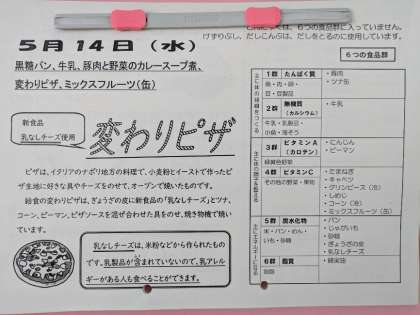 は、６つの食品群に入っていません。
けずりぶし、だしこんぶは、だしをとるのに使用しています。
５月１４日（水）
黒糖パン、牛乳、豚肉と野菜のカレースープ煮、
変わりピザ、ミックスフルーツ（缶）
新食品
乳なしチーズ使用
変わりピザ
ピザは、イタリアのナポリ地方の料理で、小麦粉とイーストで作ったピ
ザ生地に好きな具やチーズをのせて、オーブンで焼いたものです。
給食の変わりピザは、ぎょうざの皮に新食品の「乳なしチーズ」とツナ、
コーン、ピーマン、ピザソースを混ぜ合わせた具をのせ、焼き物機で焼い
ています。
乳なしチーズは、米粉などから作られたもの
です。乳製品が含まれていないので、乳アレル
ギーがある人も食べることができます。
６つの食品群
主に体の組織をつくる
１群 たんぱく質
魚・肉・卵・
豆・豆製品
・豚肉
・ツナ缶
２群 無機質
（カルシウム）
牛乳・乳製品・
小魚・海そう
・牛乳
主に体の調子を整える
３群 ビタミンＡ
（カロテン）
緑黄色野菜
・にんじん
・ピーマン
４群 ビタミンＣ
その他の野菜・果物
・たまねぎ
・キャベツ
・グリンピース（冷）
・しめじ
・コーン（冷）
・ミックスフルーツ（缶）
主にエネルギーになる
５群 炭水化物
米・パン・めん・
いも・砂糖
・パン
・じゃがいも
・砂糖
・ぎょうざの皮
・乳なしチーズ
６群 脂質
油脂
・綿実油